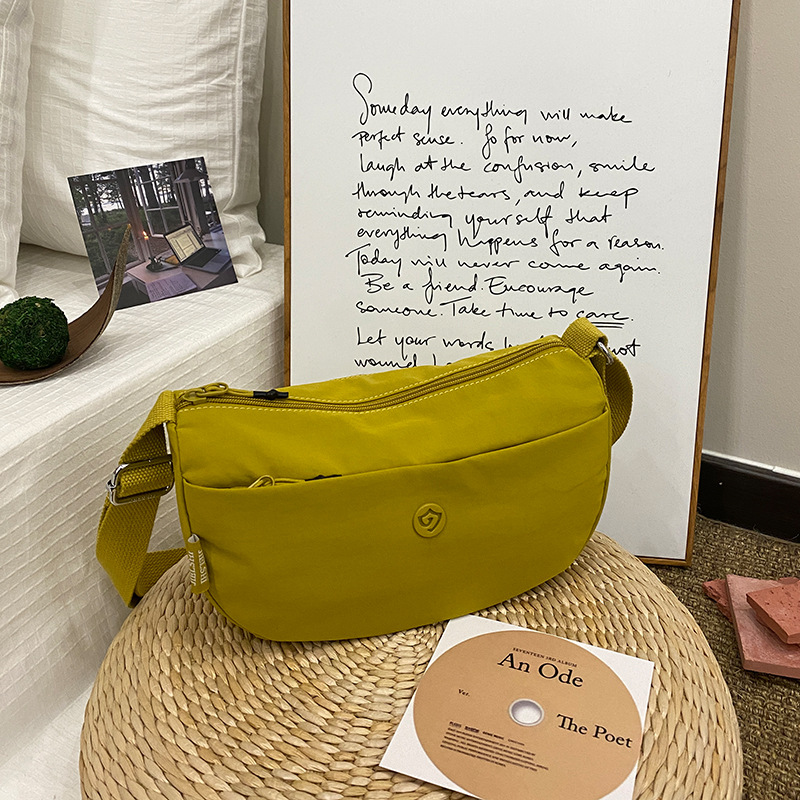 Someday everything will make
perfect sense. So for now,
laugh at the confusion, smile
through the tears, and keep
reminding yourself that
everything happens for a reason.
Today will never come again.
Be a friend. Encourage
someone. Take time to care.
Let your words not
wound
SEVENTEEN 3RD ALBUM
An Ode
Ver.
The Poet